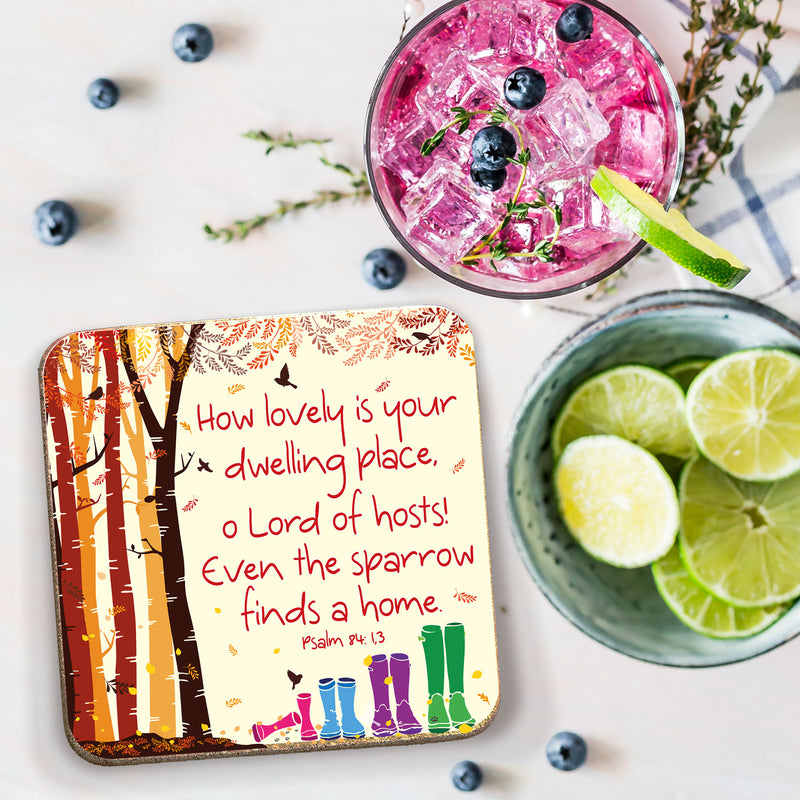 How lovely is your
dwelling place,
o Lord of hosts!
Even the sparrow
finds a home.
Psalm 84: 1,3